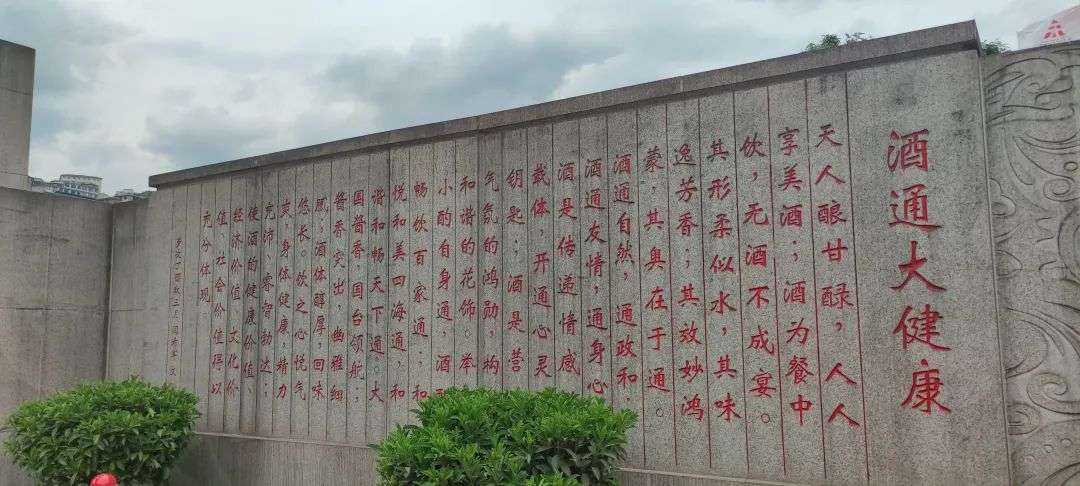 酒通大健康
天人酿甘醁，人人
享美酒；酒为餐中
饮，无酒不成宴。
其形柔似水，其味
逸芳香；其效妙鸿
蒙，其奥在于通。
酒通自然，通政和，
酒通友情，通身心
酒是传递情感
载体，开通心灵
钥匙；酒是营
气氛的鸿勋，构
和谐的花饰。举
小酌自身通，酒
畅饮百家通；和
悦和美四海通，和
谐和畅天下通。大
国酱香，国台领航，
酱香突出，幽雅细
腻，酒体醇厚，回味
悠长。饮之心悦气
爽，身体健康，精力
充沛，睿智勃达；
使酒的健康价值、
经济价值、文化价
值、社会价值得以
充分体现。